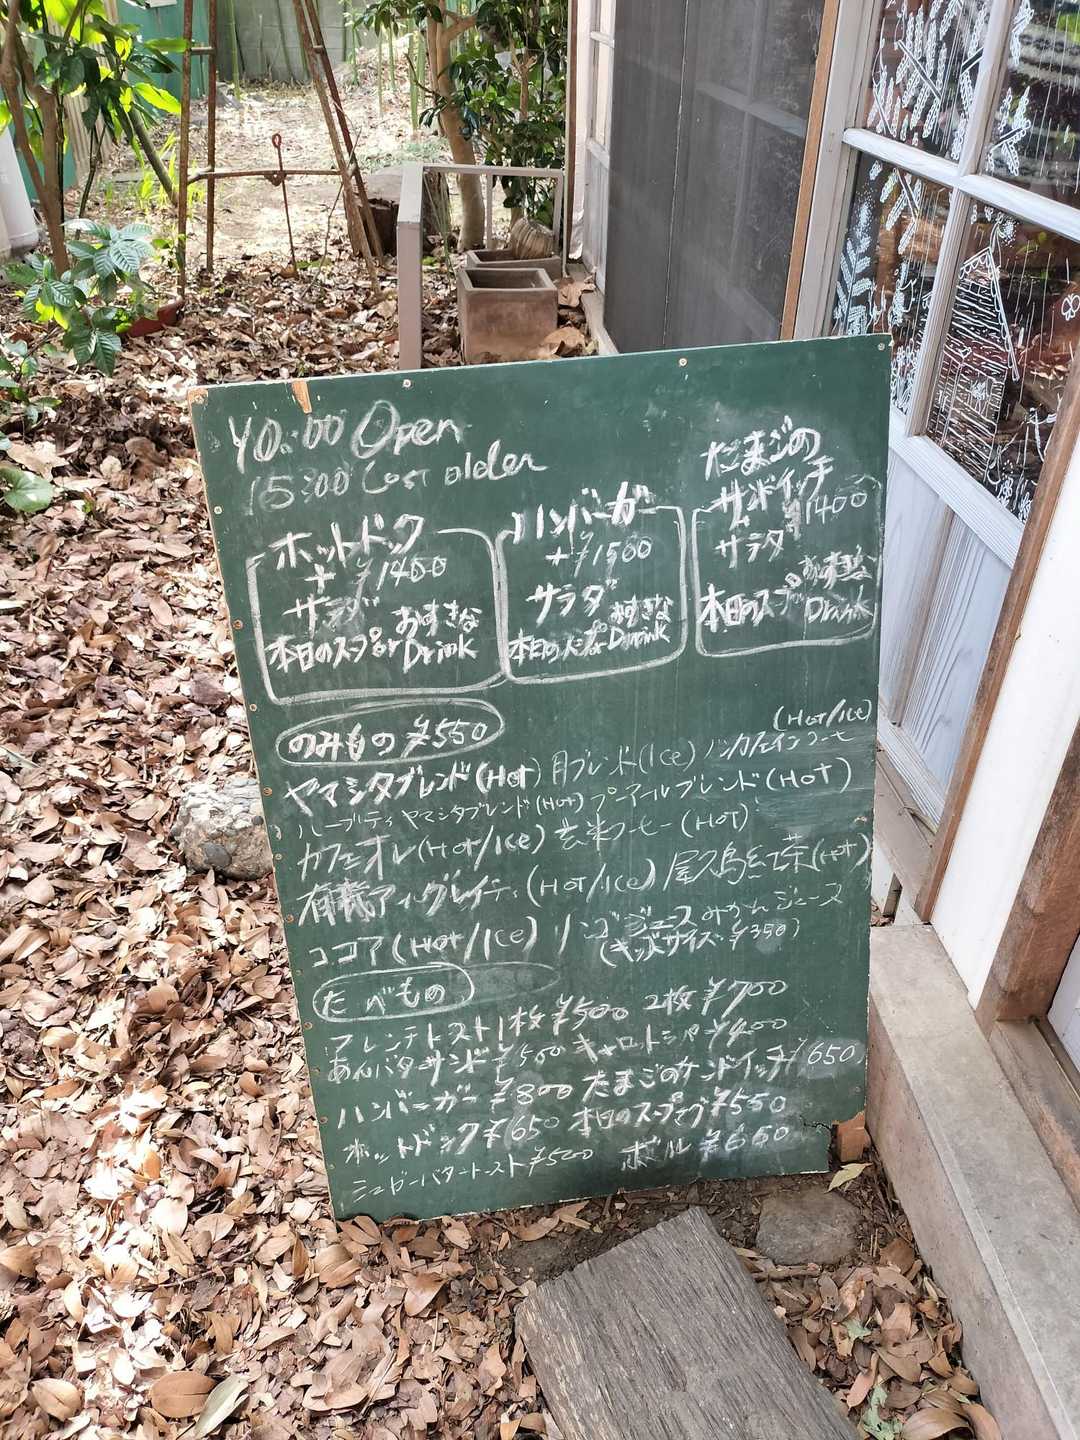 10:00 Open
15:00 Last older
ホットドック
+ ¥1400
サラダ
本日のスープ or おすきな Drink
ハンバーガー
+ ¥1500
サラダ
本日のスープ or おすきな Drink
たまごの
サンドイッチ
¥1400
サラダ
本日のスープ おすきな Drink
のみもの ¥550
ヤマシタブレンド(Hot) 月ブレンド(Ice) ノンカフェインコーヒー (Hot/Ice)
ハーブティ ヤマシタブレンド(Hot) プーアールブレンド(Hot)
カフェオレ(Hot/Ice) 玄米コーヒー(Hot)
有機アールグレイティ(Hot/Ice) 屋久島紅茶(Hot)
ココア(Hot/Ice) リンゴジュース みかんジュース
(キッズサイズ ¥350)
たべもの
フレンチトースト 1枚 ¥500 2枚 ¥700
あんバターサンド ¥500 キャロットラペ ¥400
ハンバーガー ¥800 たまごのサンドイッチ ¥650
ホットドック ¥650 本日のスープ マグ ¥550
シュガーバタートースト ¥500 ボール ¥650